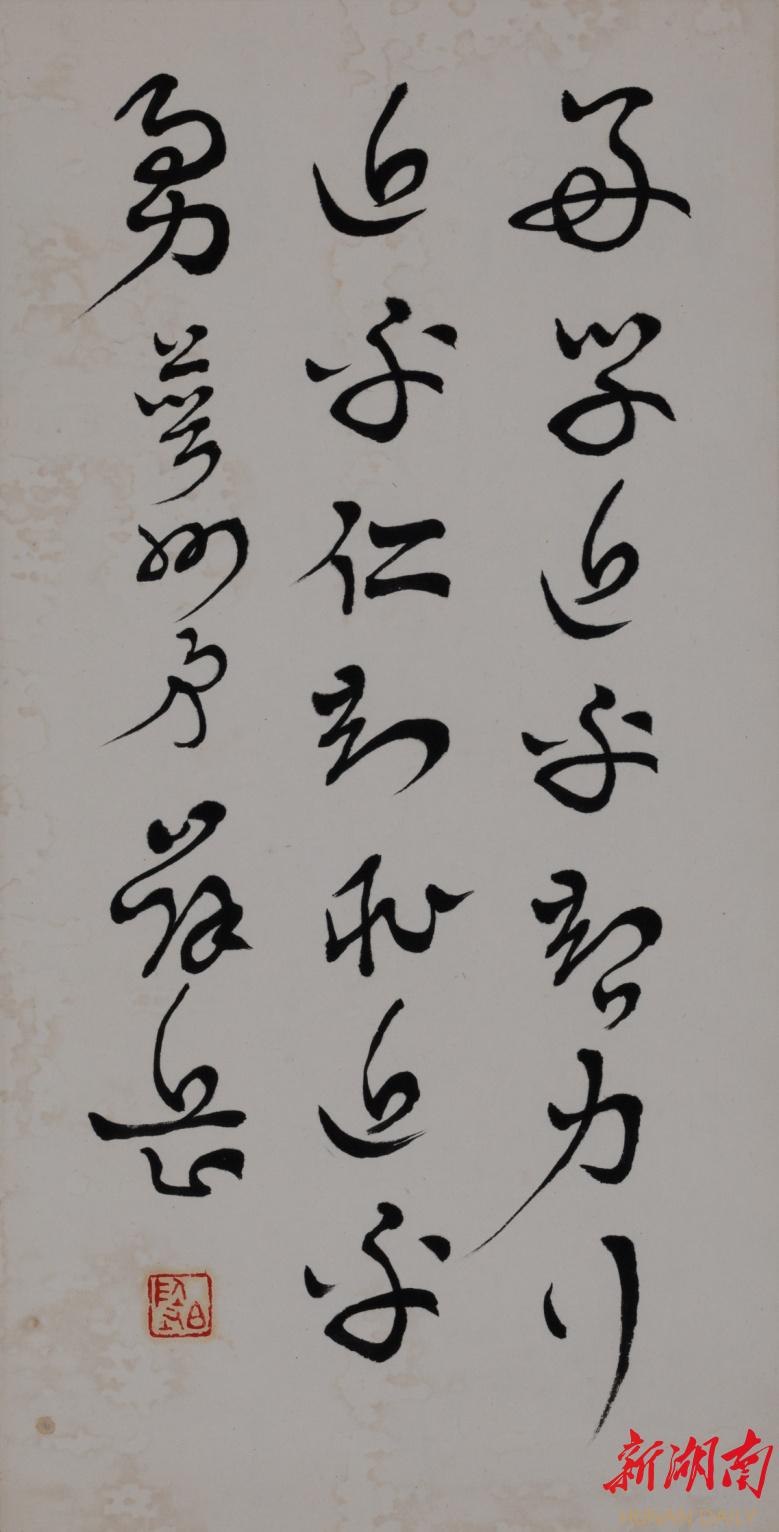 好学近乎智力行
近乎仁知耻近乎
勇 萼洲予 薛岳
新湖南
HUNAN DAILY